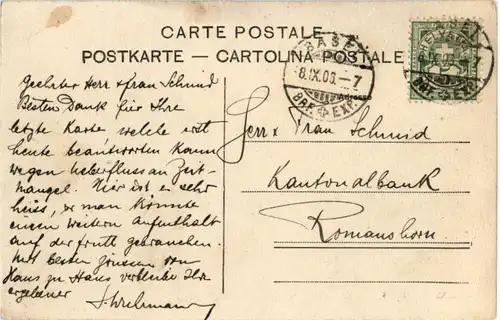 CARTE POSTALE
POSTKARTE — CARTOLINA POSTALE
BASEL
8.IX.06.—7
BRF. EXP.
HELVETIA
Adresse
Geehrter Herr & Frau Schmid
Besten Dank für Ihre
letzte Karte welche erst
heute beantworten kann
wegen Ueberfluss an Zeit-
mangel. Hier ist es sehr
heiss, man könnte
einen weitern Aufenthalt
auf der Frutt gebrauchen.
Mit besten Grüssen von
Haus zu Haus verbleibe Ihr
ergebener
Herr & Frau Schmid
Kantonalbank
Romanshorn